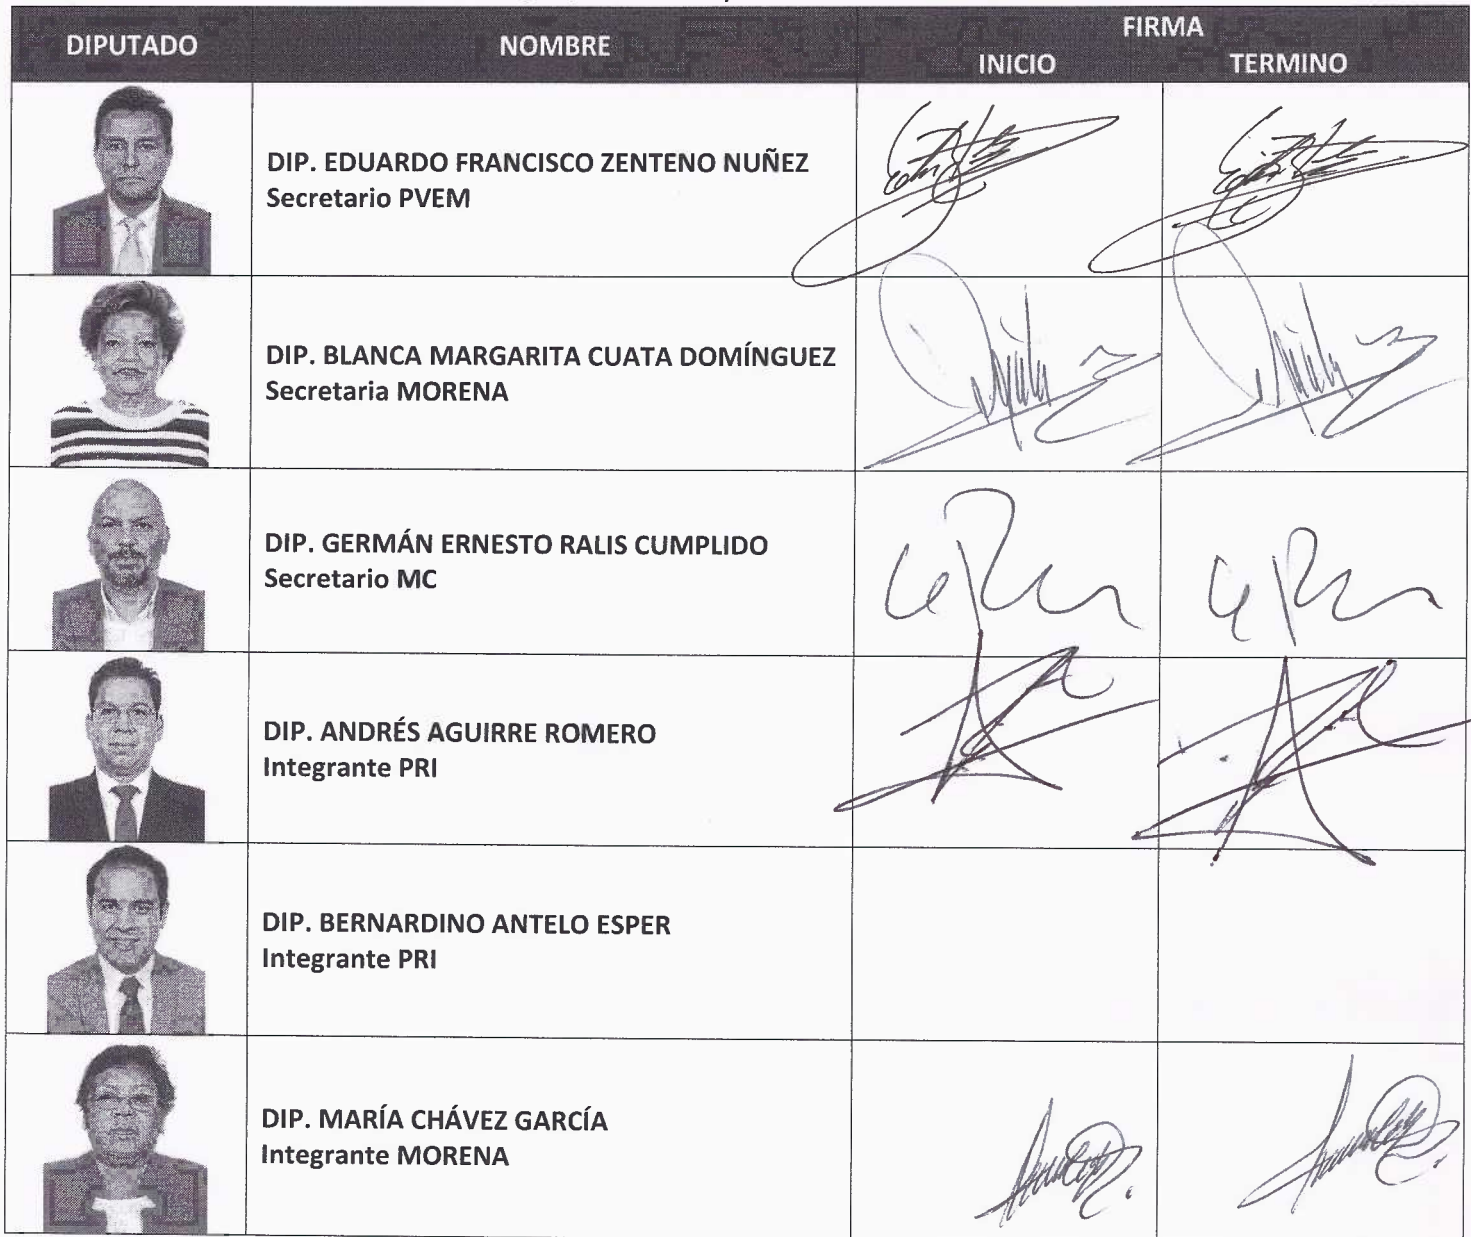 FIRMA
DIPUTADO NOMBRE INICIO TERMINO
DIP. EDUARDO FRANCISCO ZENTENO NUÑEZ
Secretario PVEM
DIP. BLANCA MARGARITA CUATA DOMÍNGUEZ
Secretaria MORENA
DIP. GERMÁN ERNESTO RALIS CUMPLIDO
Secretario MC
DIP. ANDRÉS AGUIRRE ROMERO
Integrante PRI
DIP. BERNARDINO ANTELO ESPER
Integrante PRI
DIP. MARÍA CHÁVEZ GARCÍA
Integrante MORENA